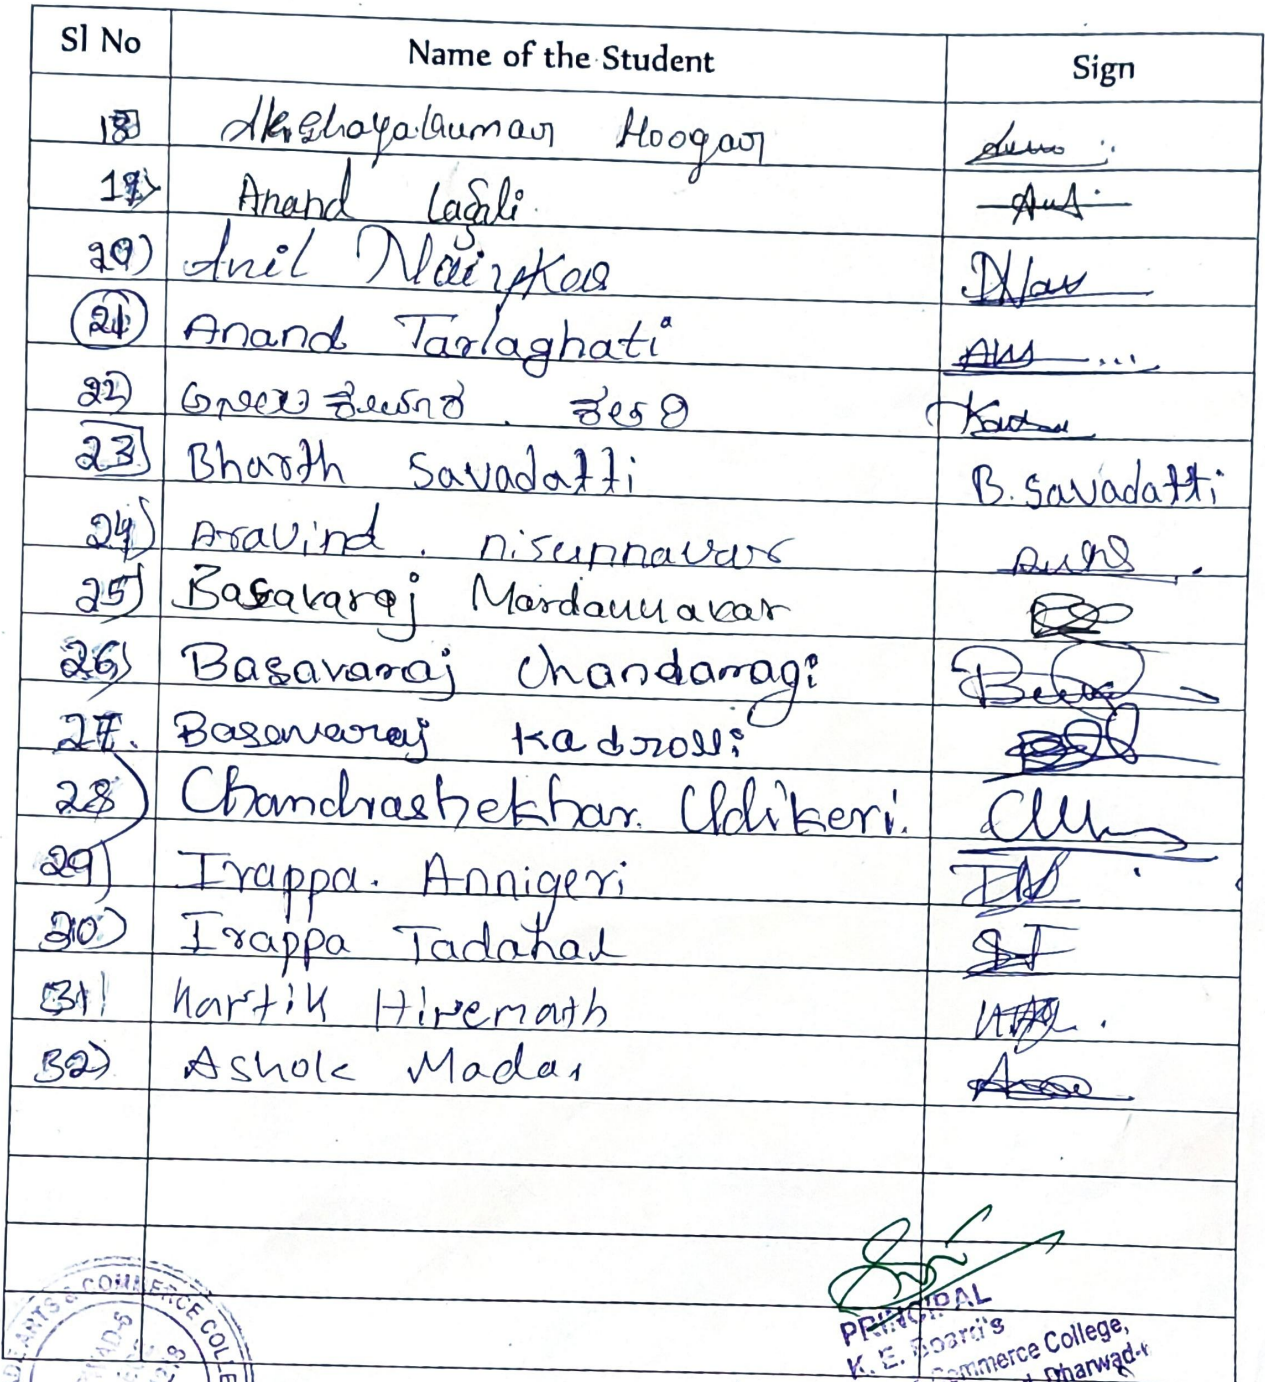 Sl No Name of the Student Sign
18 Akshayakumar Hoogar
19) Anand Lagali.
20) Anil
21 Anand Tarlaghati
22)
23 Bharth Savadatti B. Savadatti
24) Aravind . nisunnavar
25) Basavaraj
26) Basavaraj Chandaragi
27. Basavaraj Kadrolli
28) Chandrashekhar. Udikeri.
29) Irappa. Annigeri
30) Irappa Tadahal
31) Kartik Hiremath
32) Ashok Madar
PRINCIPAL
K. E. Board's
Commerce College,
Dharwad-
ARTS & COMMERCE COLLE